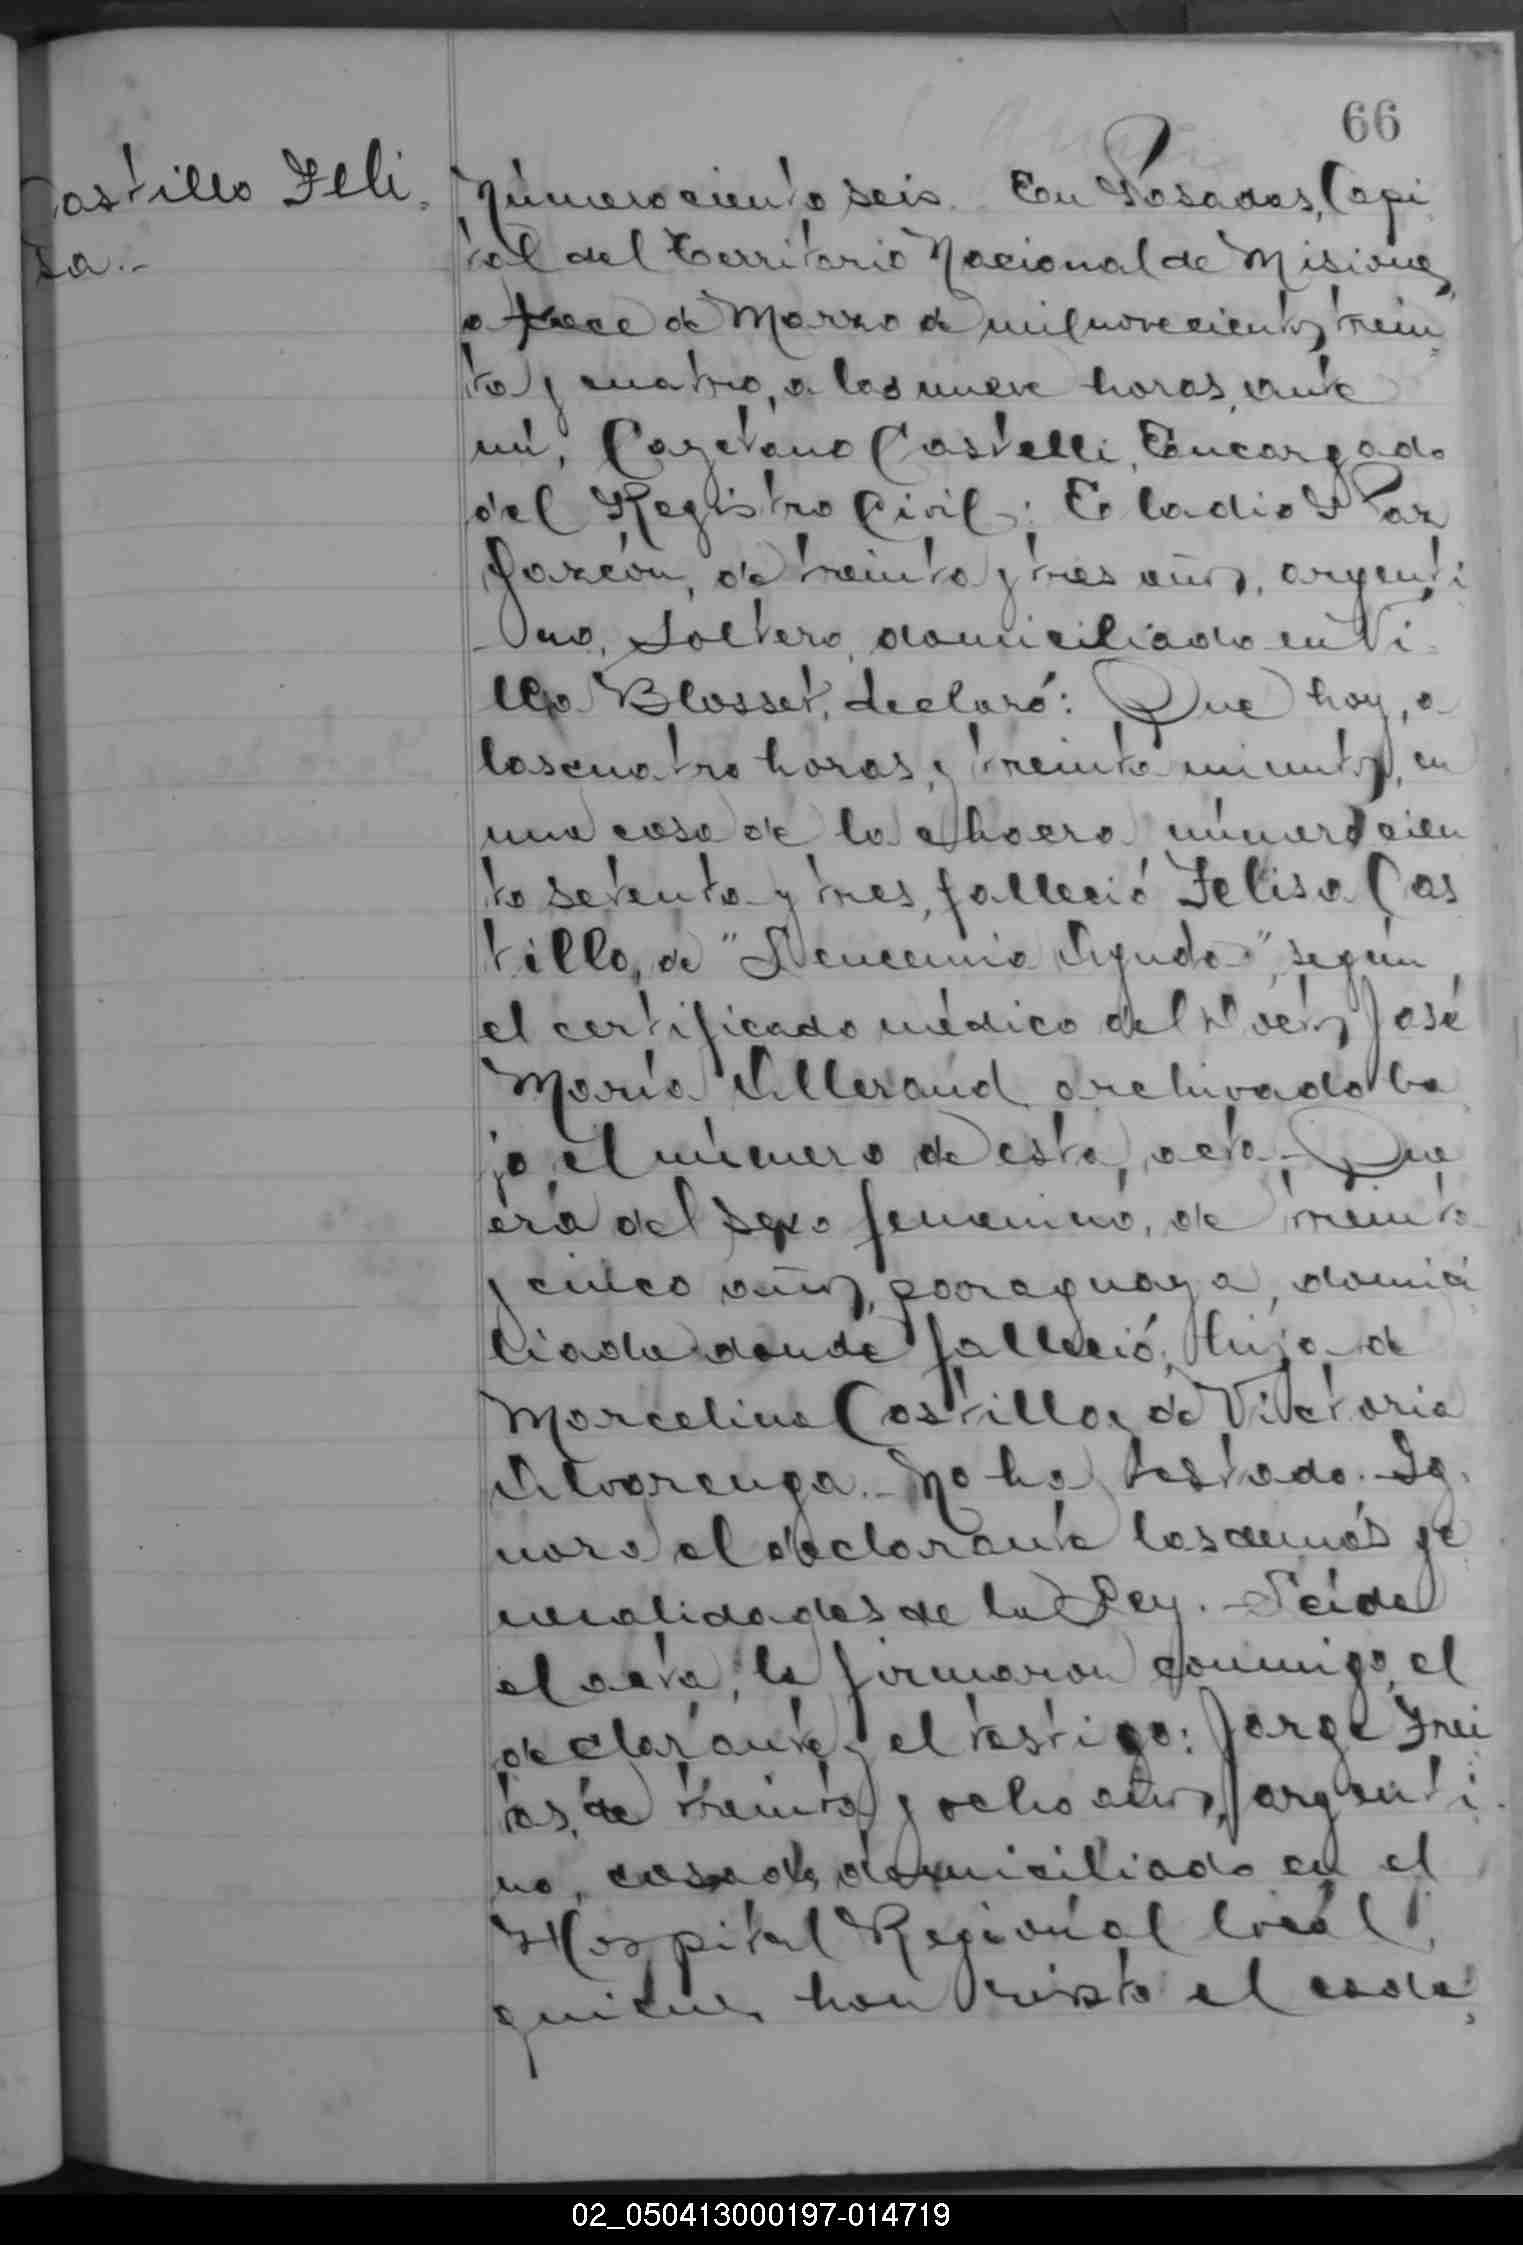 66
Castillo Feli-
sa.-
Número ciento seis. En Posadas, Capi
tal del Territorio Nacional de Misiones,
a trece de Marzo de mil novecientos trein-
ta y cuatro, a las nueve horas, ante
mí, Cayetano Castelli, Encargado
del Registro Civil; Eladio
de treinta y tres años, argenti
no, soltero, domiciliado en Vi-
lla Blosset, declaró: Que hoy, a
las cuatro horas y treinta minutos, en
una casa de la chacra número cien
to setenta y tres, falleció Felisa Cas
tillo, de "Leucemia Aguda", según
el certificado médico del Doctor José
María Alleraud archivado ba
jo el número de esta acta.- Que
era del sexo femenino, de treinta
y cinco años, paraguaya, domici
liada donde falleció, hija de
Marcelino Castillo y de Victoria
Alvarenga.- No ha testado. Ig-
nora el declarante las demás ge
neralidades de la Ley.- Leída
el acta, la firmaron conmigo, el
declarante y el testigo: Jorge Frei
tas, de treinta y ocho años, argenti-
no, casado, domiciliado en el
Hospital Regional local,
quienes han visto el cadá,
02_050413000197-014719